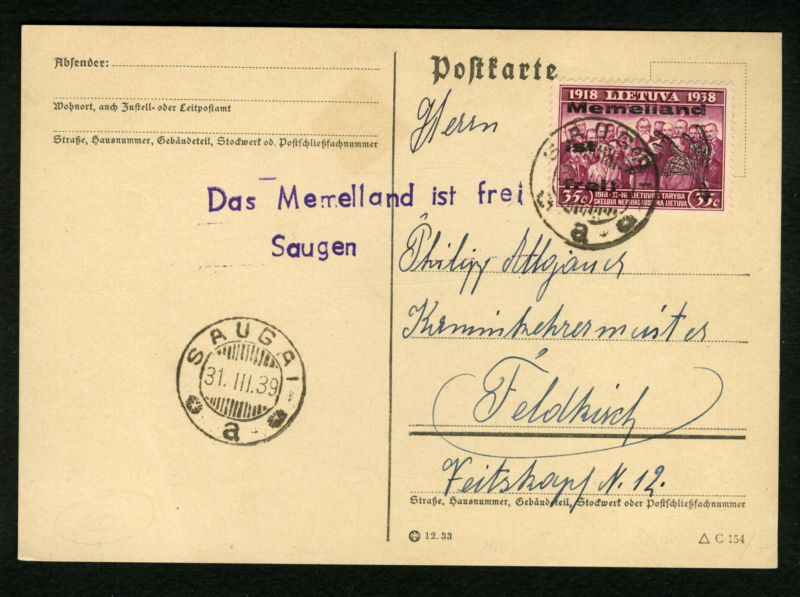 Absender:
Wohnort, auch Zustell- oder Leitpostamt
Straße, Hausnummer, Gebäudeteil, Stockwerk od. Postschließfachnummer
Postkarte
1918 LIETUVA 1938
Memelland
ist
frei
1918-II-16 LIETUVOS TARYBA
35c SKELBIA NEPRIKLAUSOMĄ LIETUVĄ 35c
Herrn
Das Memelland ist frei
Saugen
Philipp
Kaminkehrermeister
Feldkirch
Veitskapf N. 12.
SAUGAI
31. III. 39
a
Straße, Hausnummer, Gebäudeteil, Stockwerk oder Postschließfachnummer
12. 33
C 154